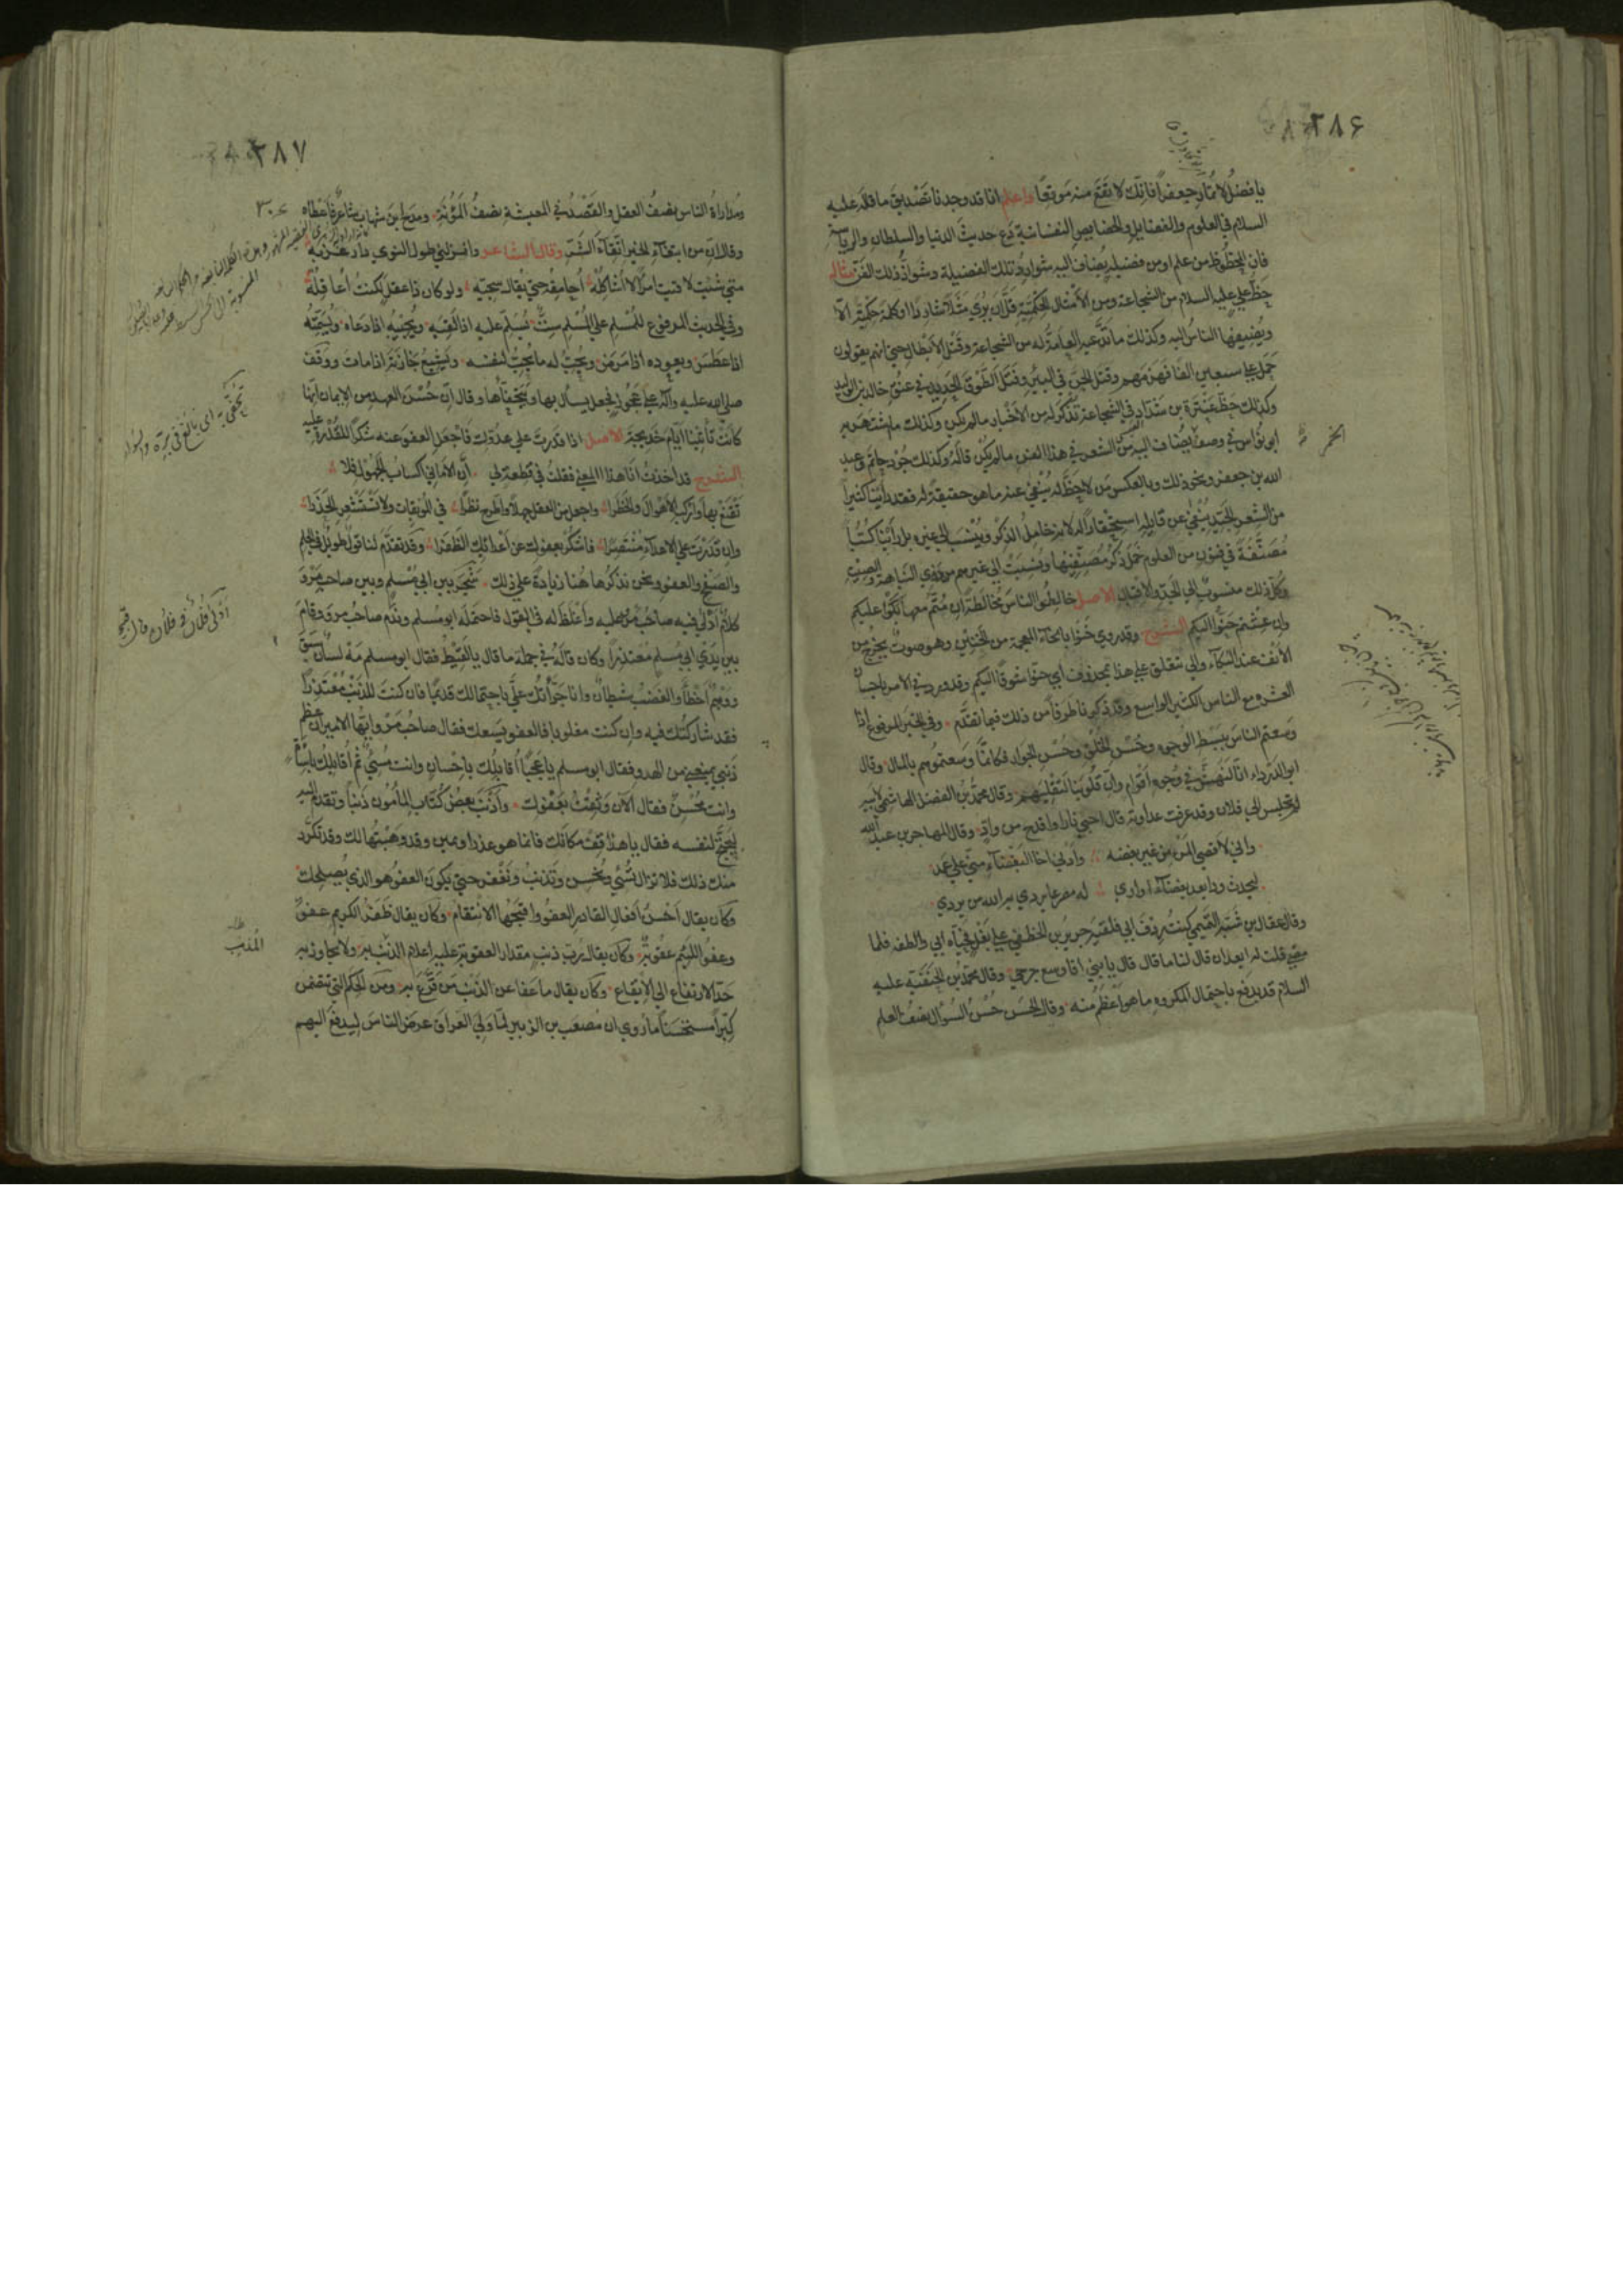 ٣٨۶
يا فضل لا تمار جعفرا فانك لا تقع منه موقعا واعلم انا قد وجدنا تصديق ما قاله عليه
السلام في العلوم والفضايل والخصايص النفسانية دع حديث الدنيا والسلطان والرياسة
فان المحظوظ من علم او من فضيلة يضاف اليه شوارد تلك الفضيلة وشواذ ذلك الفن مثاله
حظ علي عليه السلام من الشجاعة ومن الأمثال الحكمية قل ان يرى مثلا شاردا او كلمة حكمية الا
ويضيفها الناس اليه وكذلك ما تدعيه العامة له من الشجاعة وقتل الأبطال حتى انهم يقولون
حمل على سبعين الفا فهزمهم وقتل الجن في البير وفتل الطوق الحديد في عنق خالد بن الوليد
وكذلك حظ عنترة بن شداد في الشجاعة تذكر له من الأخبار ما لم يكن وكذلك ما اشتهر به
ابو نواس في وصف يضاف اليه من الشعر في هذا الفن ما لم يكن قاله وكذلك جود حاتم وعبد
الخمر
الله بن جعفر ونحو ذلك وبالعكس من لا حظ له ينفى عنه ما هو حقيقة له فقد راينا كثيرا
من الشعر الجيد ينفى عن قايله استحقارا له لانه خامل الذكر وينسب الى غيره بل راينا كتبا
مصنفة في فنون من العلوم خمل ذكر مصنفيها ونسبت الى غيرهم من ذوي النباهة والصيت
وكل ذلك منسوب الى الجد والاقبال الأصل خالطوا الناس مخالطة ان متم معها بكوا عليكم
وان عشتم حنوا اليكم الشرح وقد روي خنوا بالخاء المعجمة من الخنين وهو صوت يخرج من
الأنف عند البكاء والى تتعلق على هذا بمحذوف اي حنوا شوقا اليكم وقد ورد في الامر باحسان
العشرة مع الناس الكثير الواسع وقد ذكرنا طرفا من ذلك فيما تقدم وفي الخبر المرفوع اذا
وسعتم الناس ببسط الوجوه وحسن الخلق وحسن الجوار فكانما وسعتموهم بالمال وقال
ابو الدرداء انا لنهش في وجوه اقوام وان قلوبنا لتقليهم وقال محمد بن الفضل الهاشمي لابيه
لم تجلس الى فلان وقد عرفت عداوته قال اخبي نارا واقدح من واد وقال المهاجر بن عبد الله
واني لاقصي المرء من غير بغضه وادني اخا البغضاء مني على عمد
ليحدث ودا بعد بغضاء او ارى له مصرعا يردي به الله من يردي
وقال عقال بن شبة التميمي كنت ردف ابي فلقيه جرير بن الخطفى على بغل فحياه ابي والطفه فلما
مضى قلت له ابعد ان قال لنا ما قال قال يا بني افاوسع جرحي وقال محمد بن الحنفية عليه
السلام قد يدفع باحتمال المكروه ما هو اعظم منه وقال الحسن حسن السؤال نصف العلم
٣٨٧
ومداراة الناس نصف العقل والقصد في المعيشة نصف المؤنة ومدح ابن شهاب شاعر فاعطاه
وقال ان من ابتغاء الخير اتقاء الشر وقال الشاعر وانزلني طول النوى دار غربة
متى شئت لاقيت امرأ لا اشاكله أحامقه حتى يقال سجية ولو كان ذا عقل لكنت أعاقله
وفي الحديث المرفوع للمسلم على المسلم ست يسلم عليه اذا لقيه ويجيبه اذا دعاه ويشمته
اذا عطس ويعوده اذا مرض ويحب له ما يحب لنفسه ويشيع جنازته اذا مات ووقف
صلى الله عليه وآله على عجوز فجعل يسأل بها ويتحفاها وقال ان حسن العهد من الايمان انها
تحفى به اى بالغ فى بره والسؤال
كانت تأتينا ايام خديجة الأصل اذا قدرت على عدوك فاجعل العفو عنه شكرا للقدرة عليه
الشرح قد اخذت انا هذا المعنى فقلت في قطعة لي ان الاماني اكساب الجهول فلا
تقنع بها واركب الأهوال والخطرا واجعل من العقل جهلا واطرح نظرا في الموبقات ولا تستشعر الحذرا
وان قدرت على الاعداء منتصرا فاشكر بعفوك عن أعدائك الظفرا وقد تقدم لنا قول طويل في الحلم
والصفح والعفو ونحن نذكر ها هنا زيادة على ذلك شجر بين ابي مسلم وبين صاحب مرو
كلام أربى فيه صاحب مرو عليه واغلظ له في القول فاحتمله ابو مسلم وندم صاحب مرو وقام
بين يدي ابي مسلم معتذرا وكان قال له في جملة ما قال يا لقيط فقال ابو مسلم مه لسان سبق
ووهم اخطأ والغضب شيطان وانا جرأتك علي باحتمالك قديما فان كنت للذنب معتذرا
فقد شاركتك فيه وان كنت مغلوبا فالعفو يسعك فقال صاحب مرو ايها الامير ان عظم
ذنبي يمنعني من الهدو فقال ابو مسلم يا عجبا أقابلك باحسان وانت مسيء ثم أقابلك باساءة
وانت محسن فقال الآن وثقت بعفوك وأذنب بعض كتاب المأمون ذنبا وتقدم اليه
ليحتج لنفسه فقال يا هذا قف مكانك فانما هو عذر او يمين وقد وهبتهما لك وقد تكرر
منك ذلك فلا تزال تسيء ونحسن وتذنب ونغفر حتى يكون العفو هو الذي يصلحك
وكان يقال احسن افعال القادر العفو واقبحها الانتقام وكان يقال ظفر الكريم عفو
المذنب
وعفو اللئيم عقوبة وكان يقال رب ذنب مقدار العقوبة عليه اعلام الذنب به ولا يجاوز به
حد الارتفاع الى الايقاع وكان يقال ما عفا عن الذنب من قرع به ومن الحكم التي تتضمن
كبرا مستحسنا ما روي ان مصعب بن الزبير لما ولي العراق عرض الناس ليدفع اليهم